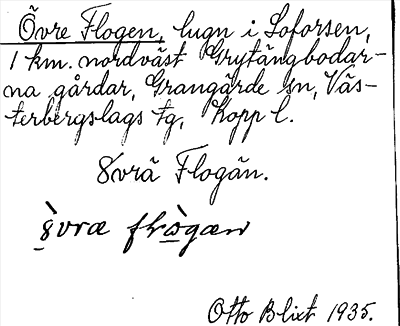 Övre Flogen, lugn i Loforsen,
1 km. nordväst Grytängbodar-
na gårdar, Grangärde sn, Väs-
terbergslags tg, Kopp l.
8vrä Flogän.
8̀vræ flɷ̀gæn
Otto Blixt 1935.